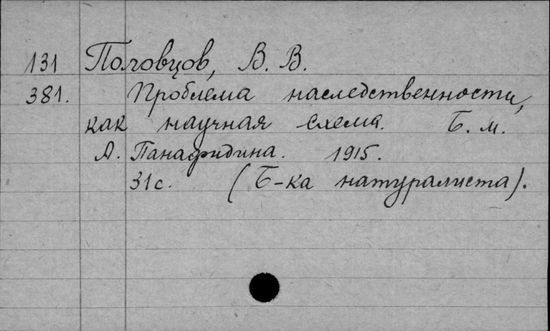 131 Половцов, В. В.
381. Проблема наследственности,
как научная схема. Б. м.
А. Панафидина. 1915.
31с. (Б-ка натуралиста).